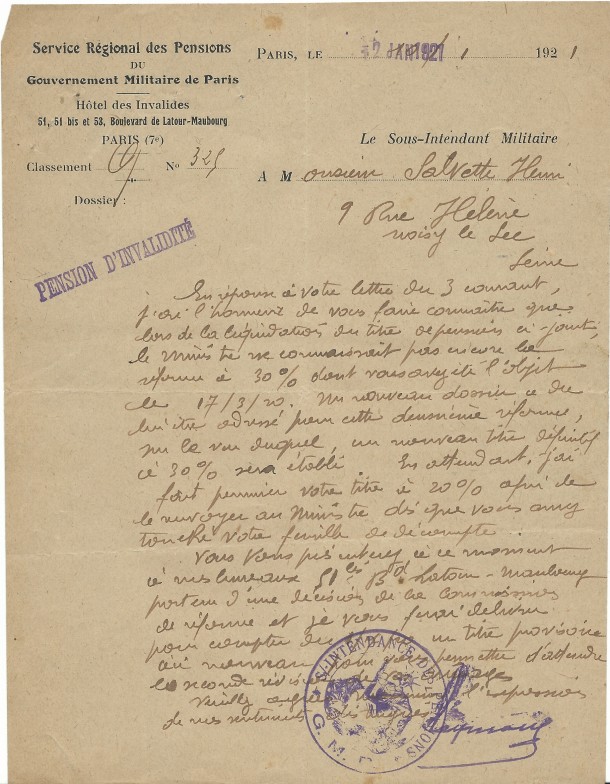 Service Régional des Pensions
DU
Gouvernement Militaire de Paris
Hôtel des Invalides
51, 51 bis et 53, Boulevard de Latour-Maubourg
PARIS (7e)
Classement No 325
Dossier :
PENSION D'INVALIDITÉ
PARIS, LE JAN 1921 1921
Le Sous-Intendant Militaire
A Monsieur Salvette Henri
9 Rue Hélène
Noisy le Sec
Seine
En réponse à votre lettre du 3 courant,
j'ai l'honneur de vous faire connaître que
lors de la liquidation du titre de pension ci-joint,
le Ministre ne connaissait pas encore la
réforme à 30% dont vous avez été l'objet
le 17/3/20. Un nouveau dossier a du
lui être adressé pour cette deuxième réforme,
sur le vu duquel, un nouveau titre définitif
à 30% sera établi. En attendant, j'ai
fait votre titre à 20% afin de
le renvoyer au Ministre dès que vous aurez
touché votre feuille de décompte.
Vous vous présenterez à ce moment
à mes bureaux 51 bis Bd Latour-Maubourg
porteur d'une décision de la Commission
de réforme et je vous ferai délivrer
pour compter du un titre provisoire
nouveau pour vous permettre d'attendre
la seconde
Veuillez agréer l'expression
de mes sentiments
S-INTENDANCE PENSIONS
G. M. P.